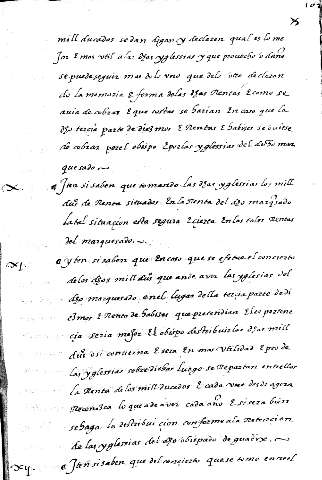 mill ducados se dan digan y declaren qual es lo me
Jor E mas vtil a las dhas yglesias y que prouecho o daño
se puede seguir mas de lo vno que de lo otro declaran
do la memoria E forma de las dhas Rentas E como se
auia de cobrar E que costas se harian En caso que la
dha tercia parte de diezmos E Rentas E habizes se ouiese
de cobrar por el obispo E por las yglesias del dicho mar
quesado
X. Yten si saben que tomando las dhas yglesias los mill
dus de Renta situados En la Renta del dho marqsado
la tal situaçion esta segura E cierta En las tales Rentas
del marquesado
XI. Yten si saben que En caso que se efetue el concierto
de los dhos mill dus que an de aver las yglesias del
dho marquesado en el lugar de la tercia parte de di
ezmos E Renta de habizes que pretendian E les pertene
cia seria mejor El obispo destribuir los dhos mill
dus o si conuerna E sera En mas vtilidad E pro de
las yglesias sobredichas luego se Repartan entrellas
la Renta de los mill ducados E cada vna desde agora
Reconozca lo que a de aver cada año E si sera bien
se haga la destribuiçion conforme a la Retencion
de las yglesias del dho obispado de guadix
XII. Yten si saben que del concierto que se tome en el